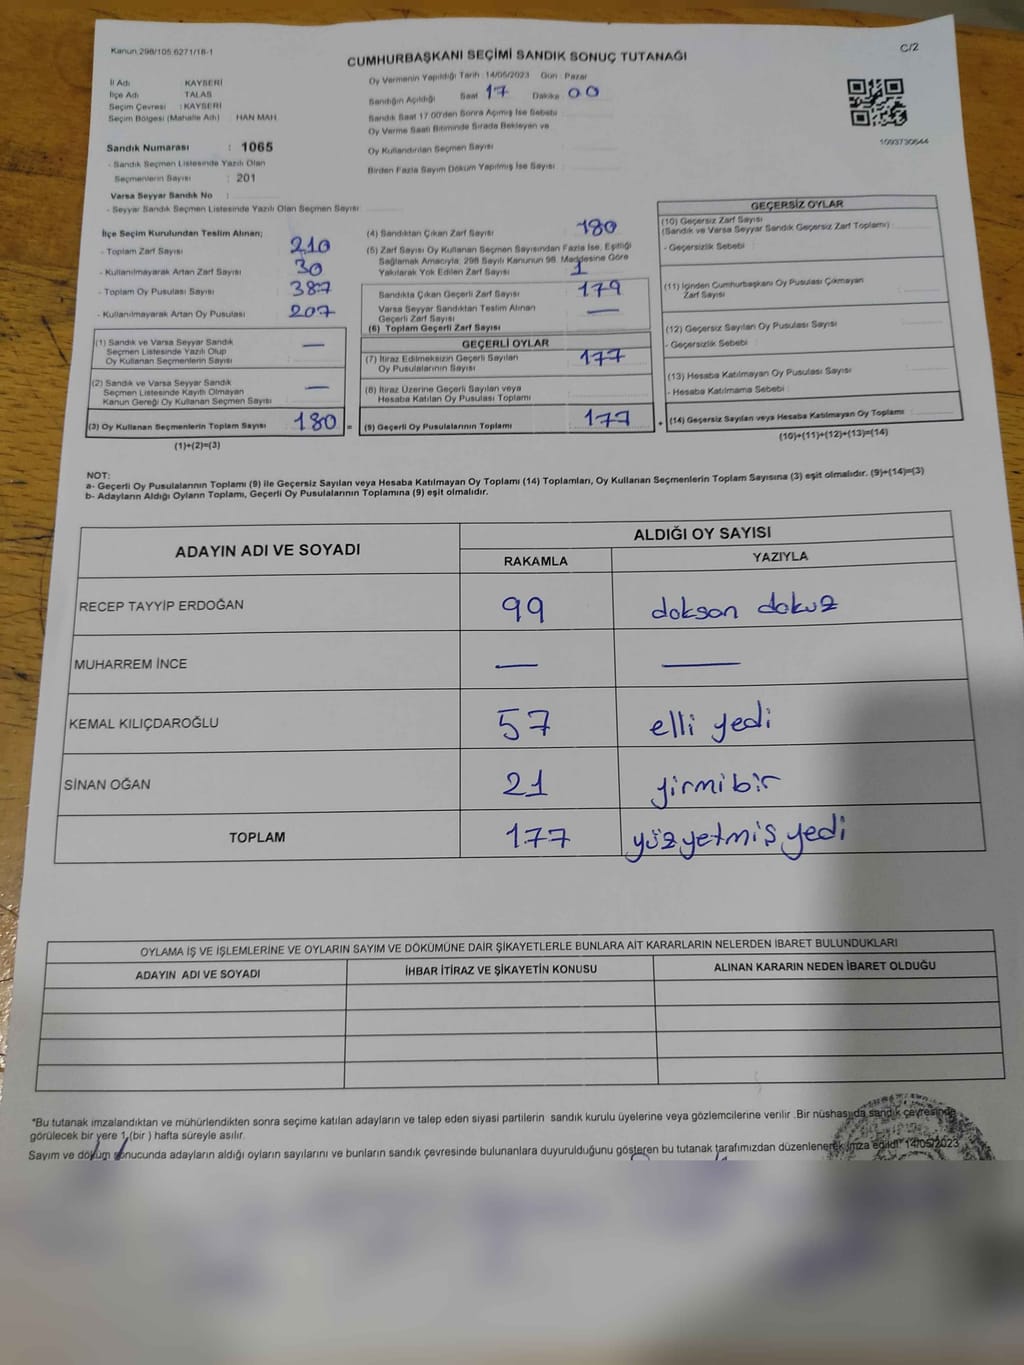 Kanun.298/105.6271/18-1
C/2
CUMHURBAŞKANI SEÇİMİ SANDIK SONUÇ TUTANAĞI
İl Adı KAYSERİ
İlçe Adı TALAS
Seçim Çevresi : KAYSERİ
Seçim Bölgesi (Mahalle Adı) : HAN MAH.
Oy Vermenin Yapıldığı Tarih :14/05/2023 Gün : Pazar
Sandığın Açıldığı Saat 17 Dakika 00
Sandık Saat 17:00'den Sonra Açılmış İse Sebebi
Oy Verme Saati Bitiminde Sırada Bekleyen ve
Oy Kullandırılan Seçmen Sayısı
Birden Fazla Sayım Döküm Yapılmış İse Sayısı
1093730644
Sandık Numarası : 1065
- Sandık Seçmen Listesinde Yazılı Olan
Seçmenlerin Sayısı : 201
Varsa Seyyar Sandık No :
- Seyyar Sandık Seçmen Listesinde Yazılı Olan Seçmen Sayısı
İlçe Seçim Kurulundan Teslim Alınan;
- Toplam Zarf Sayısı 210
- Kullanılmayarak Artan Zarf Sayısı 30
- Toplam Oy Pusulası Sayısı 387
- Kullanılmayarak Artan Oy Pusulası 207
(1) Sandık ve Varsa Seyyar Sandık
Seçmen Listesinde Yazılı Olup
Oy Kullanan Seçmenlerin Sayısı —
(2) Sandık ve Varsa Seyyar Sandık
Seçmen Listesinde Kayıtlı Olmayan
Kanun Gereği Oy Kullanan Seçmen Sayısı —
(3) Oy Kullanan Seçmenlerin Toplam Sayısı 180 =
(1)+(2)=(3)
(4) Sandıktan Çıkan Zarf Sayısı 180
(5) Zarf Sayısı Oy Kullanan Seçmen Sayısından Fazla İse, Eşitliği
Sağlamak Amacıyla, 298 Sayılı Kanunun 98. Maddesine Göre
Yakılarak Yok Edilen Zarf Sayısı 1
Sandıkta Çıkan Geçerli Zarf Sayısı 179
Varsa Seyyar Sandıktan Teslim Alınan
Geçerli Zarf Sayısı —
(6) Toplam Geçerli Zarf Sayısı
GEÇERLİ OYLAR
(7) İtiraz Edilmeksizin Geçerli Sayılan
Oy Pusulalarının Sayısı 177
(8) İtiraz Üzerine Geçerli Sayılan veya
Hesaba Katılan Oy Pusulası Toplamı
(9) Geçerli Oy Pusulalarının Toplamı 177 +
GEÇERSİZ OYLAR
(10) Geçersiz Zarf Sayısı
(Sandık ve Varsa Seyyar Sandık Geçersiz Zarf Toplamı)
- Geçersizlik Sebebi
(11) İçinden Cumhurbaşkanı Oy Pusulası Çıkmayan
Zarf Sayısı
(12) Geçersiz Sayılan Oy Pusulası Sayısı
- Geçersizlik Sebebi
(13) Hesaba Katılmayan Oy Pusulası Sayısı
- Hesaba Katılmama Sebebi
(14) Geçersiz Sayılan veya Hesaba Katılmayan Oy Toplamı
(10)+(11)+(12)+(13)=(14)
NOT:
a- Geçerli Oy Pusulalarının Toplamı (9) ile Geçersiz Sayılan veya Hesaba Katılmayan Oy Toplamı (14) Toplamları, Oy Kullanan Seçmenlerin Toplam Sayısına (3) eşit olmalıdır. (9)+(14)=(3)
b- Adayların Aldığı Oyların Toplamı, Geçerli Oy Pusulalarının Toplamına (9) eşit olmalıdır.
ADAYIN ADI VE SOYADI ALDIĞI OY SAYISI
RAKAMLA YAZIYLA
RECEP TAYYİP ERDOĞAN 99 doksan dokuz
MUHARREM İNCE — —
KEMAL KILIÇDAROĞLU 57 elli yedi
SİNAN OĞAN 21 yirmibir
TOPLAM 177 yüzyetmiş yedi
OYLAMA İŞ VE İŞLEMLERİNE VE OYLARIN SAYIM VE DÖKÜMÜNE DAİR ŞİKAYETLERLE BUNLARA AİT KARARLARIN NELERDEN İBARET BULUNDUKLARI
ADAYIN ADI VE SOYADI İHBAR İTİRAZ VE ŞİKAYETİN KONUSU ALINAN KARARIN NEDEN İBARET OLDUĞU
*Bu tutanak imzalandıktan ve mühürlendikten sonra seçime katılan adayların ve talep eden siyasi partilerin sandık kurulu üyelerine veya gözlemcilerine verilir .Bir nüshası da sandık çevresinde
görülecek bir yere 1 (bir ) hafta süreyle asılır.
Sayım ve döküm sonucunda adayların aldığı oyların sayılarını ve bunların sandık çevresinde bulunanlara duyurulduğunu gösteren bu tutanak tarafımızdan düzenlenerek imza edildi. 14/05/2023